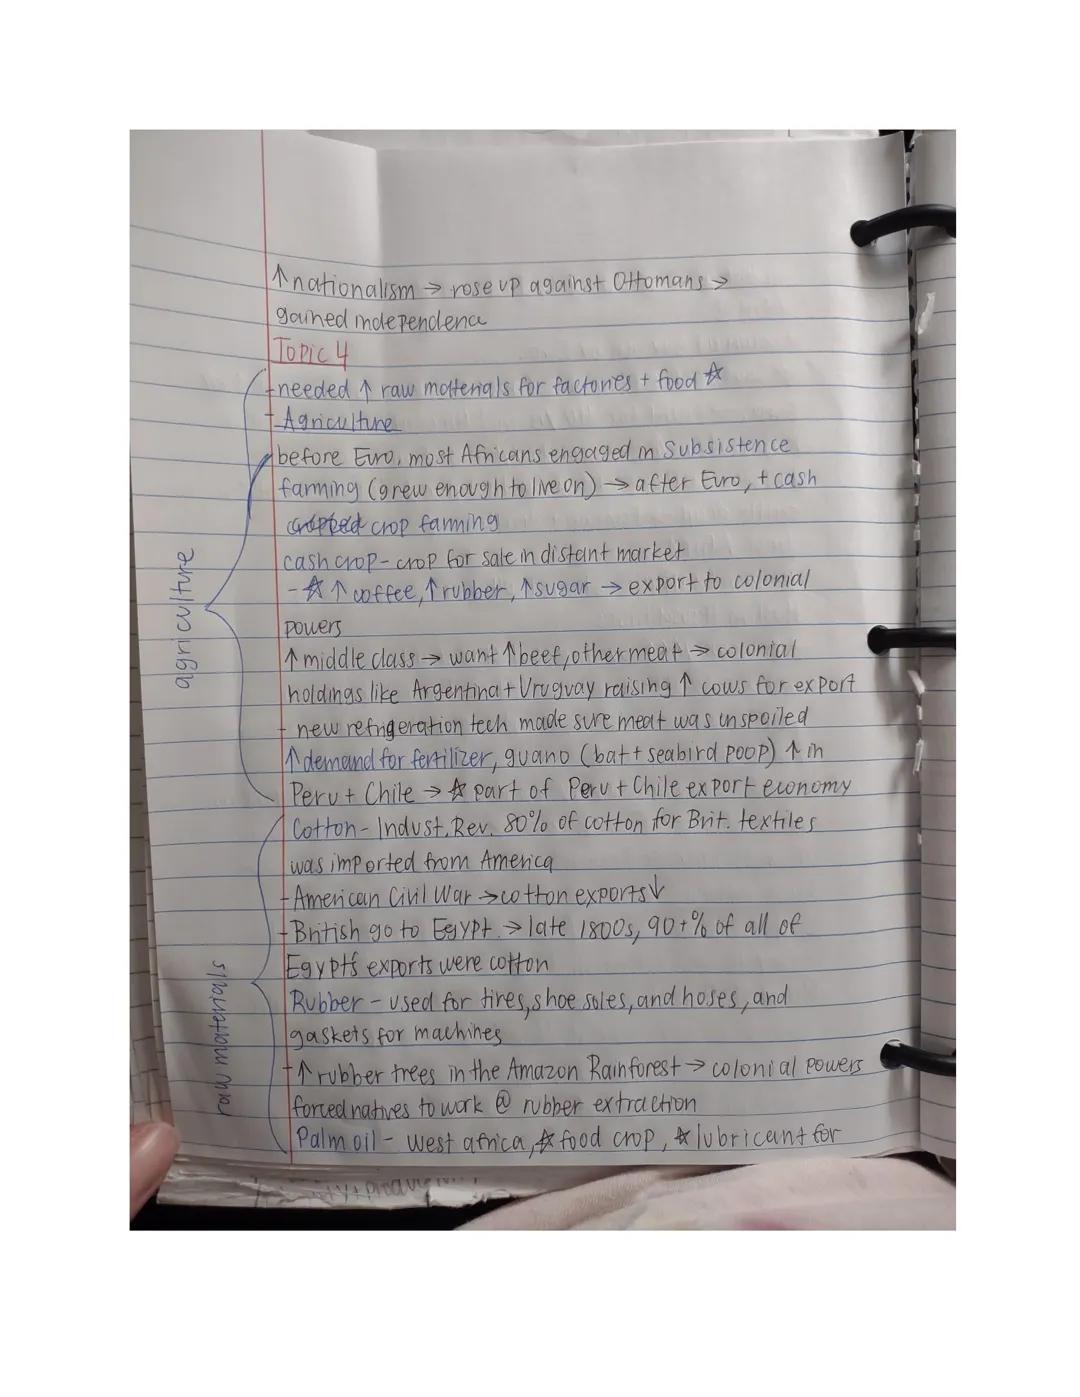 ↑ nationalism → rose up against Ottomans →
gained independence
Topic 4
- needed ↑ raw materials for factories + food ☆
- Agriculture
before Euro, most Africans engaged in Subsistence
farming (grew enough to live on) → after Euro, + cash
crop farming
cash crop - crop for sale in distant market
- ☆ ↑ coffee, ↑ rubber, ↑ sugar → export to colonial
powers
↑ middle class → want ↑ beef, other meat → colonial
holdings like Argentina + Uruguay raising ↑ cows for export
- new refrigeration tech made sure meat was unspoiled
↑ demand for fertilizer, guano (bat + seabird poop) ↑ in
Peru + Chile → ☆ part of Peru + Chile export economy
agriculture
Cotton - Indust. Rev. 80% of cotton for Brit. textiles
was imported from America
- American Civil War → cotton exports ↓
- British go to Egypt → late 1800s, 90+% of all of
Egypt's exports were cotton
Rubber - used for tires, shoe soles, and hoses, and
gaskets for machines
- ↑ rubber trees in the Amazon Rainforest → colonial powers
forced natives to work @ rubber extraction
Palm oil - west africa, ☆ food crop, ☆ lubricant for
raw materials